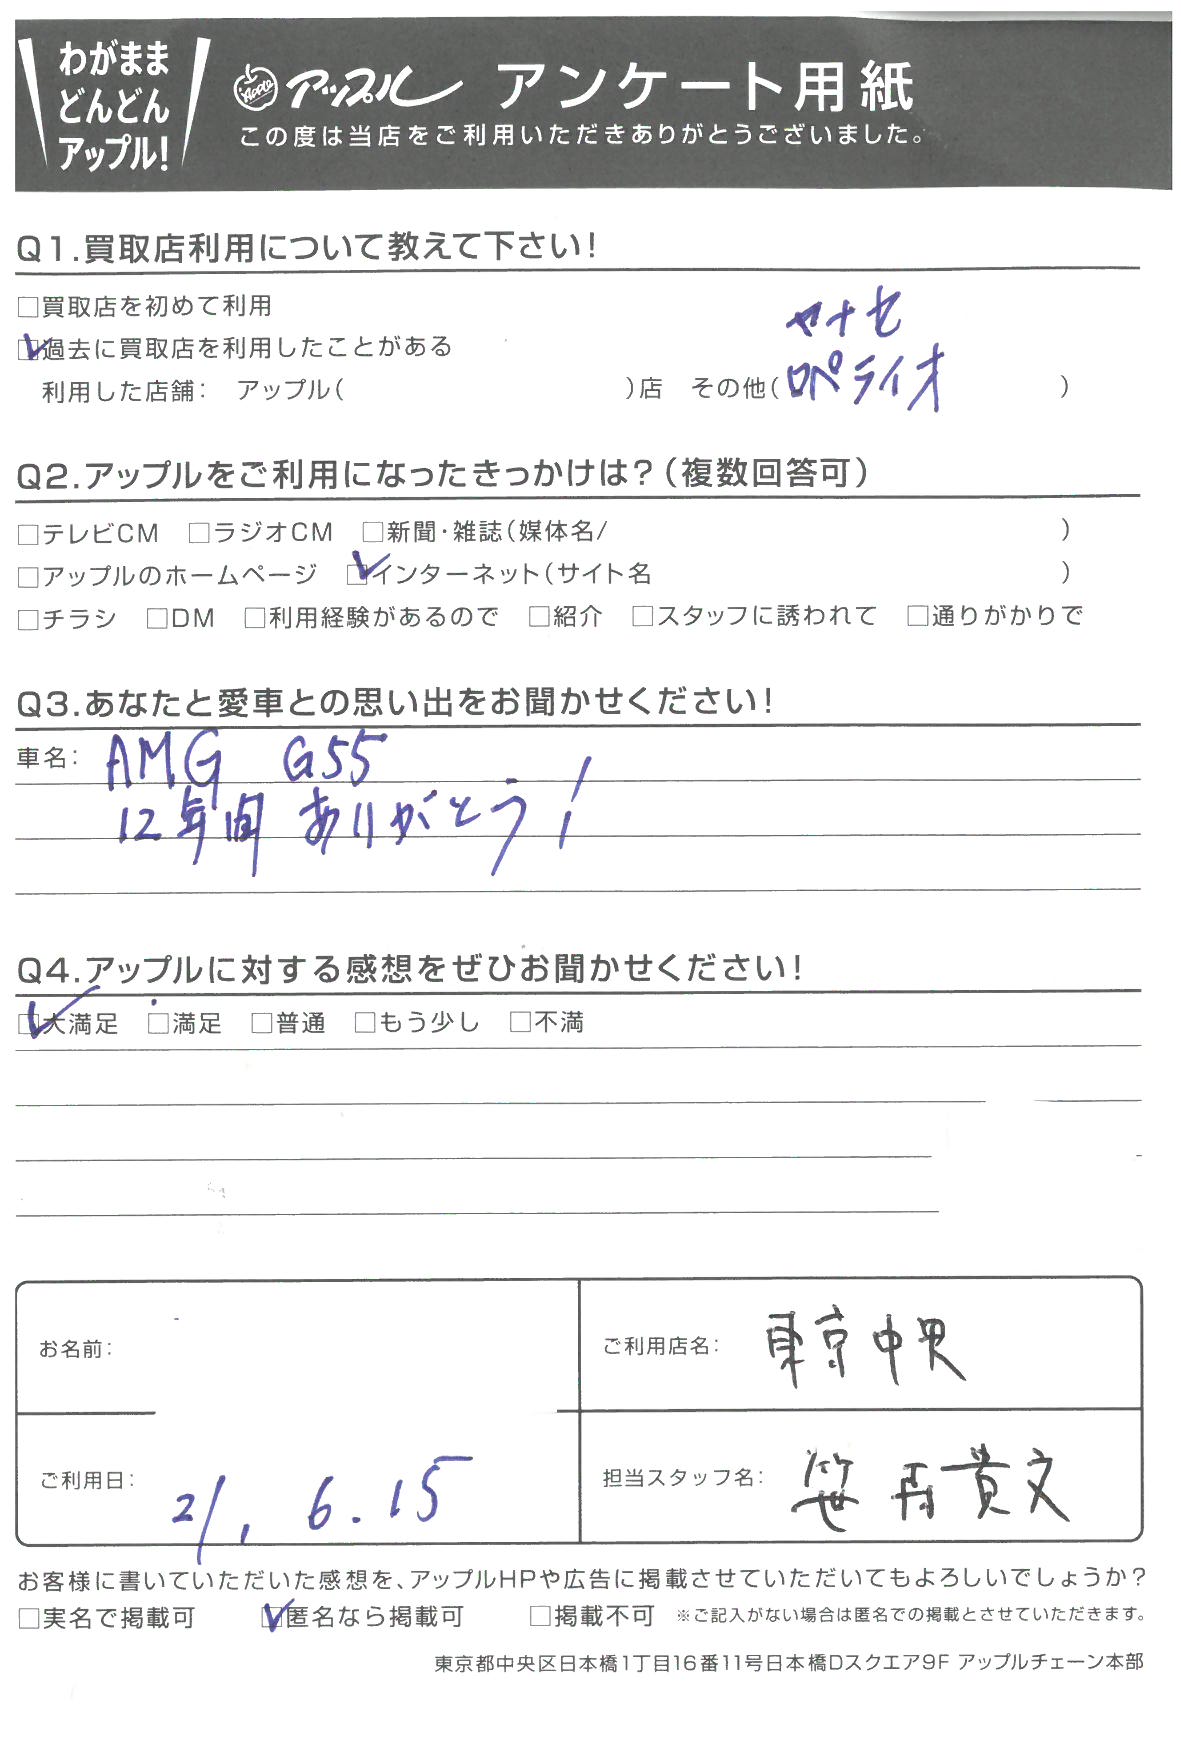 わがまま
どんどん
アップル!
Apple アップル アンケート用紙
この度は当店をご利用いただきありがとうございました。
Q1.買取店利用について教えて下さい!
□買取店を初めて利用
☑過去に買取店を利用したことがある
ヤナセ
利用した店舗: アップル( )店 その他(ロペライオ )
Q2.アップルをご利用になったきっかけは?(複数回答可)
□テレビCM □ラジオCM □新聞・雑誌(媒体名/ )
□アップルのホームページ ☑インターネット(サイト名 )
□チラシ □DM □利用経験があるので □紹介 □スタッフに誘われて □通りがかりで
Q3.あなたと愛車との思い出をお聞かせください!
車名: AMG G55
12年間 ありがとう!
Q4.アップルに対する感想をぜひお聞かせください!
☑大満足 □満足 □普通 □もう少し □不満
お名前:
ご利用店名: 東京中央
ご利用日: 21. 6.15
担当スタッフ名: 笹 貴文
お客様に書いていただいた感想を、アップルHPや広告に掲載させていただいてもよろしいでしょうか?
□実名で掲載可 ☑匿名なら掲載可 □掲載不可 ※ご記入がない場合は匿名での掲載とさせていただきます。
東京都中央区日本橋1丁目16番11号日本橋Dスクエア9F アップルチェーン本部